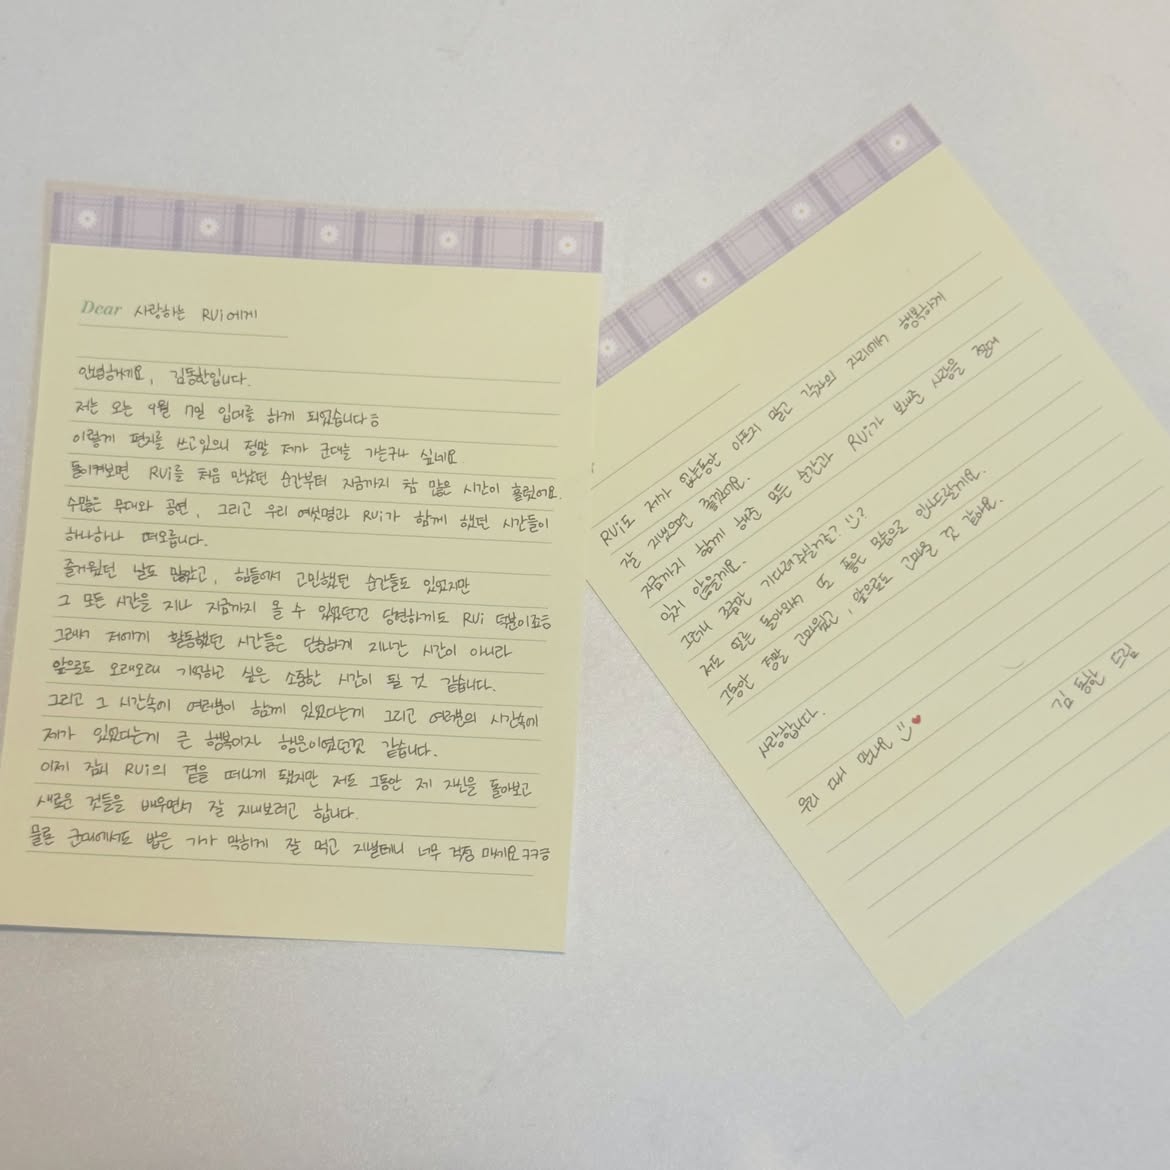 Dear 사랑하는 RUi에게
안녕하세요, 김동한입니다.
저는 오는 9월 7일 입대를 하게 되었습니다ㅎ
이렇게 편지를 쓰고있으니 정말 제가 군대를 가는구나 싶네요.
돌이켜보면 RUi를 처음 만났던 순간부터 지금까지 참 많은 시간이 흘렀어요.
수많은 무대와 공연, 그리고 우리 여섯명과 RUi가 함께 했던 시간들이
하나하나 떠오릅니다.
즐거웠던 날도 많았고, 힘들어서 고민했던 순간들도 있었지만
그 모든 시간을 지나 지금까지 올 수 있었던건 당연하게도 RUi 덕분이죠ㅎ
그래서 저에게 활동했던 시간들은 단순하게 지나간 시간이 아니라
앞으로도 오래오래 기억하고 싶은 소중한 시간이 될 것 같습니다.
그리고 그 시간속에 여러분이 함께 있었다는게 그리고 여러분의 시간속에
제가 있었다는게 큰 행복이자 행운이였던것 같습니다.
이제 잠시 RUi의 곁을 떠나게 됐지만 저도 그동안 제 자신을 돌아보고
새로운 것들을 배우면서 잘 지내보려고 합니다.
물론 군대에서도 밥은 기가 막히게 잘 먹고 지낼테니 너무 걱정 마세요ㅋㅋㅎ
RUi도 제가 없는동안 아프지 말고 각자의 자리에서 행복하게
잘 지냈으면 좋겠어요.
지금까지 함께 해준 모든 순간과 RUi가 보내준 사랑을 절대
잊지 않을게요.
그러니 조금만 기다려주실거죠? :)?
저도 얼른 돌아와서 또 좋은 모습으로 인사드릴게요.
그동안 정말 고마웠고, 앞으로도 고마울 것 같아요.
사랑합니다.
우리 또 만나요 :)♥
김동한 드림